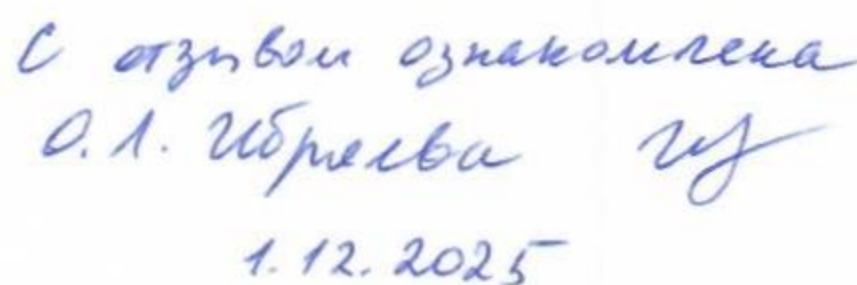 С отзывом ознакомлена
О.Л. Ибряева
1.12.2025